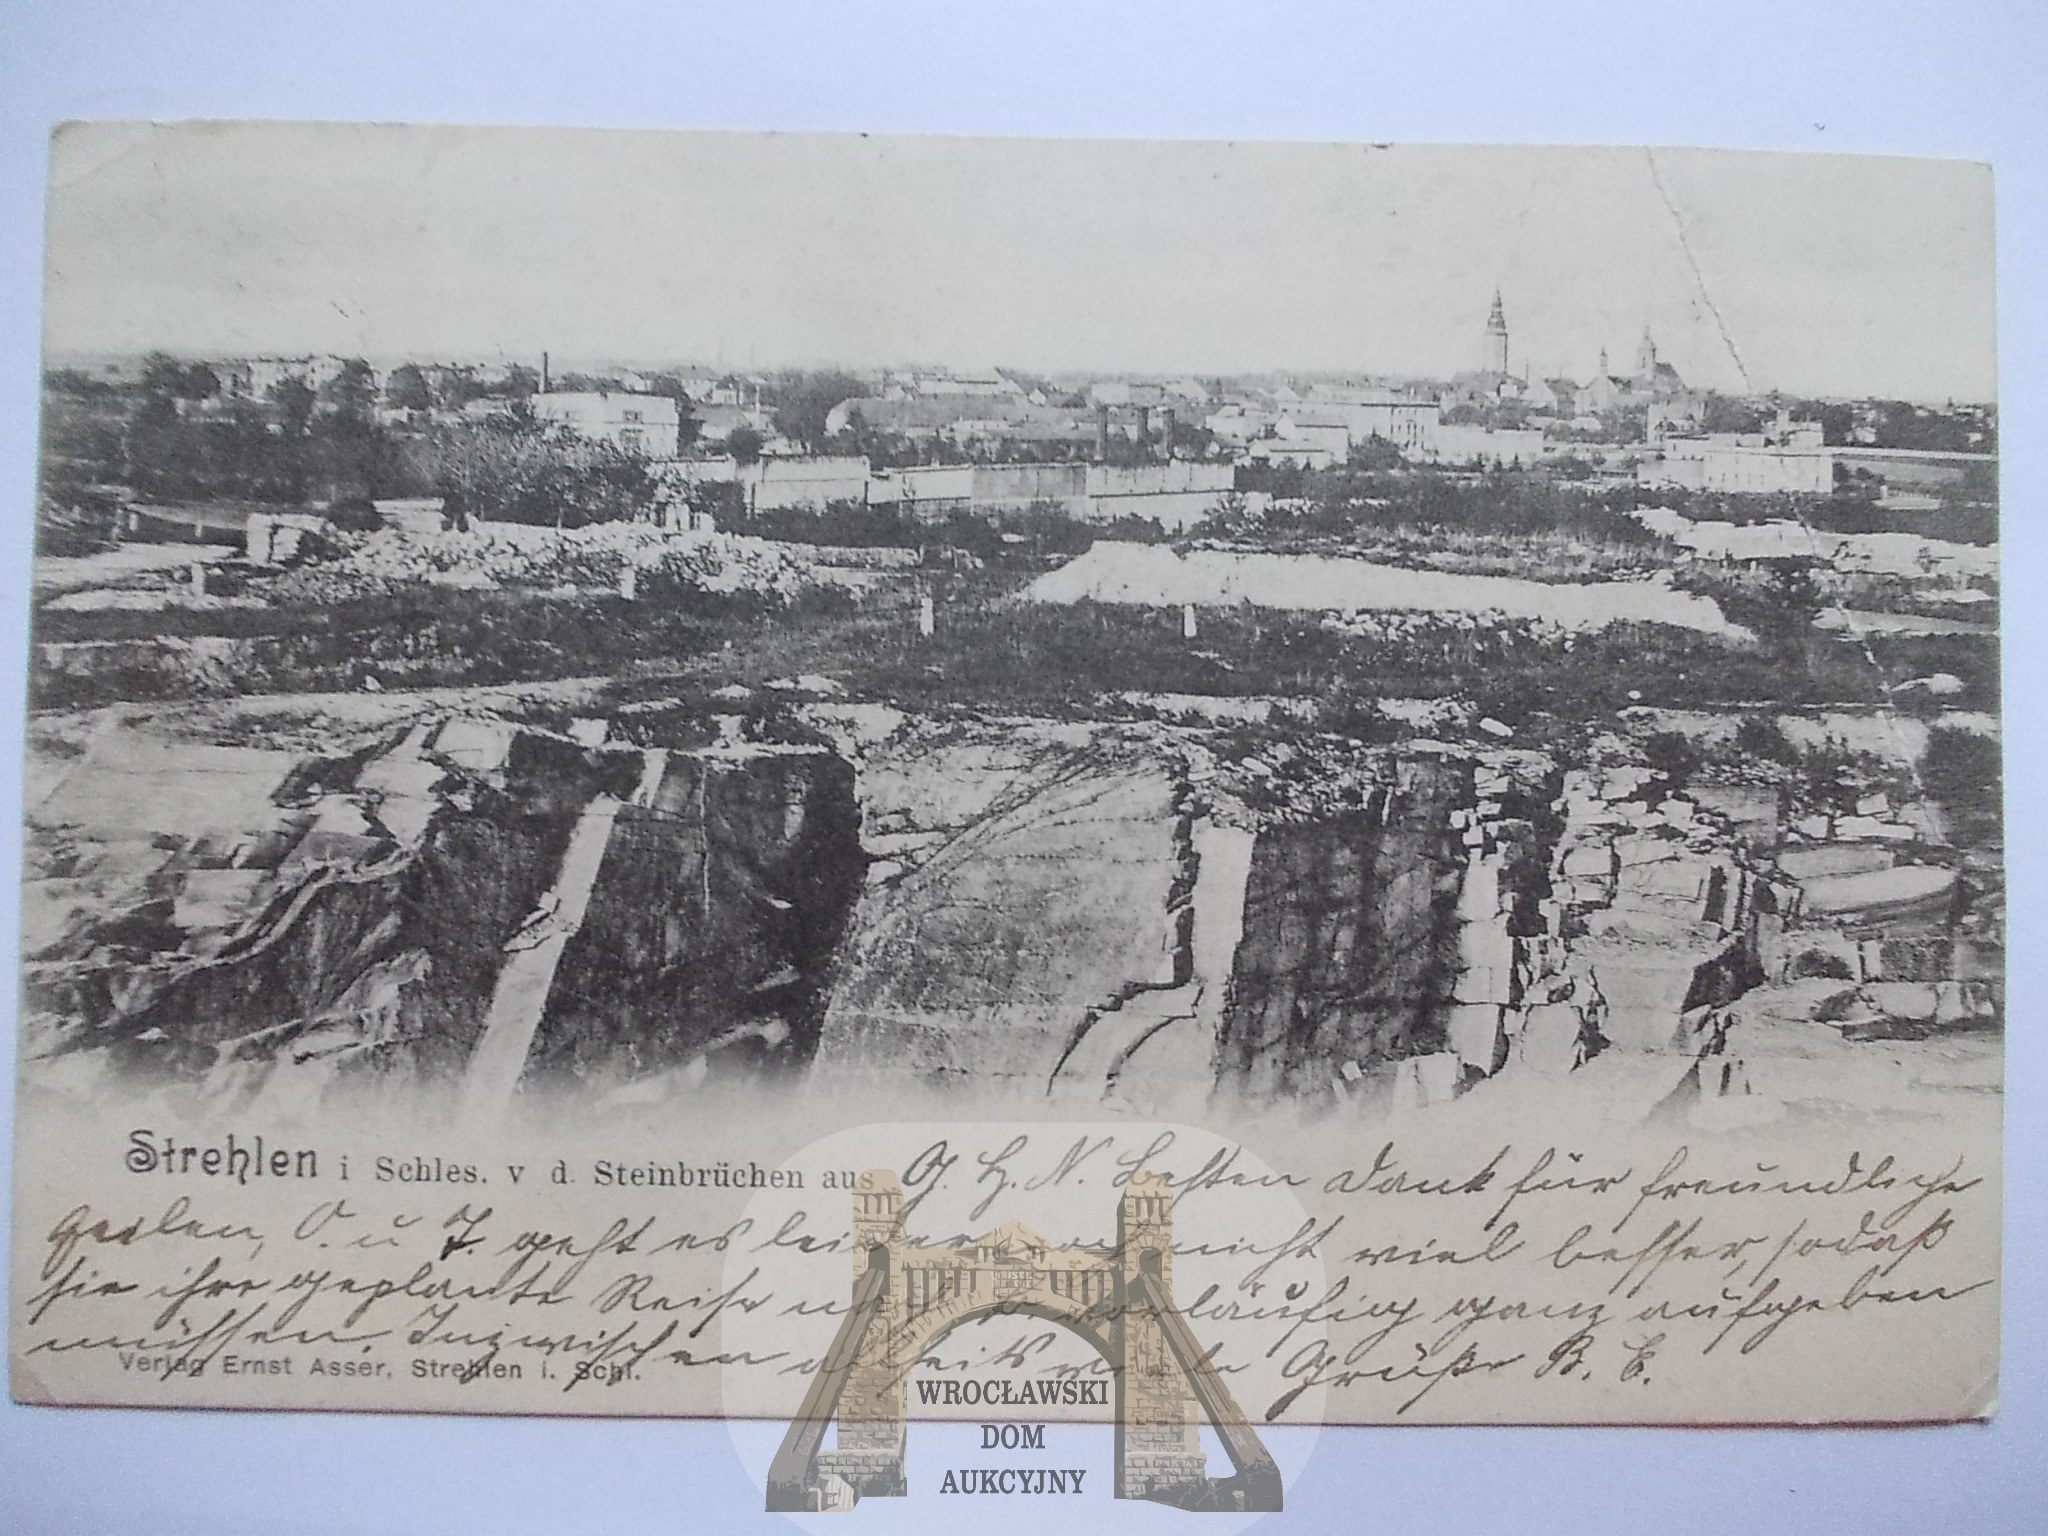 Strehlen i Schles. v d. Steinbrüchen aus G. H. N. Besten Dank für freundliche
Zeilen, O. u T. geht es leider noch nicht viel besser, sodaß
sie ihre geplante Reise nach vorläufig ganz aufgeben
müssen. Inzwischen allseits viele Grüße B. E.
Verlag Ernst Asser, Strehlen i. Schl.
WROCŁAWSKI
DOM
AUKCYJNY